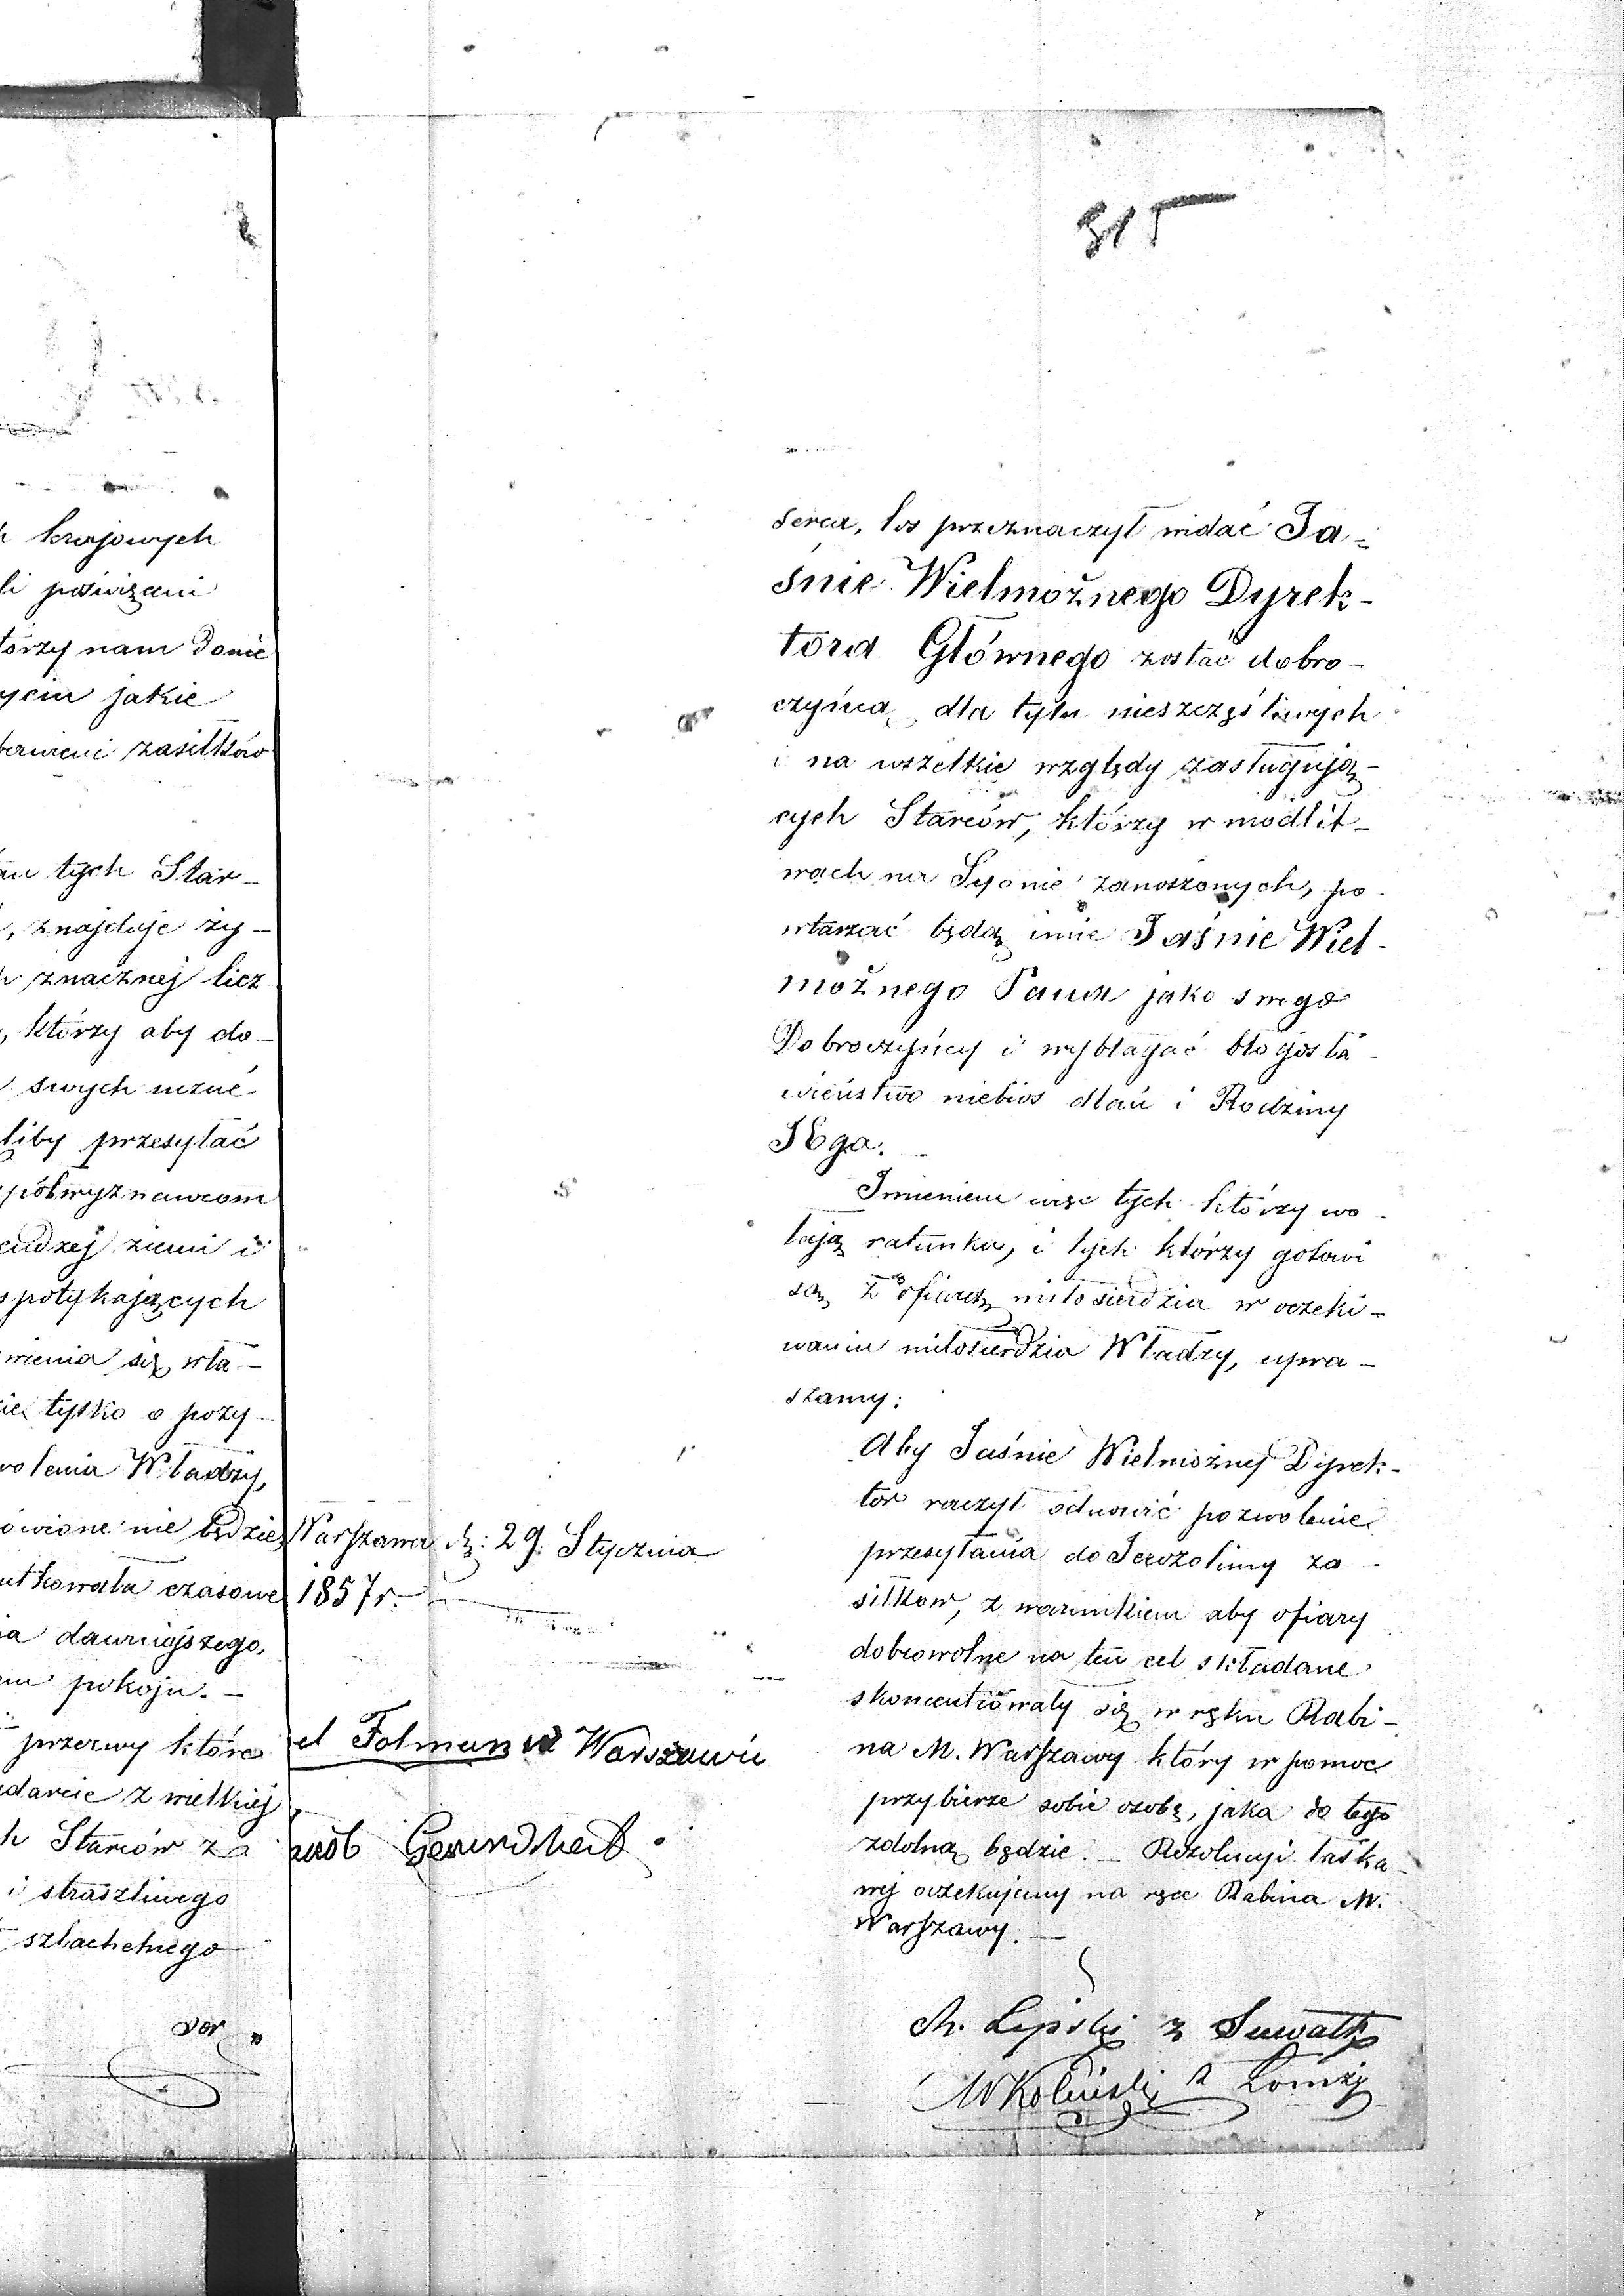 315
h krajowych
li poświęceni
tórzy nam donie
yciu jakie
zasiłków
tych Star-
, znajduje ży-
h znacznej licz
, którzy aby do-
swych uczuć
liby przesyłać
półwyznawcom
cudzej ziemi i
spotykających
wienia się wła-
ie tylko o pozy-
wolenia Władzy,
ówione nie będzie
utkowała czasowe
ia dawniejszego,
em pokoju. -
przerwy które
darcie z wielkiej
h Starców za
i straszliwego
szlachetnego
dor
serca, los przeznaczył widać Ja-
śnie Wielmożnego Dyrek-
tora Głównego zostać dobro-
czyńcą dla tylu nieszczęśliwych
i na wszelkie względy zasługują-
cych Starców, którzy w modlit-
wach na Syonie zanoszonych, po-
wtarzać będą imie Jaśnie Wiel-
możnego Pana jako swego
Dobroczyńcy i wybłagać błogosła-
wieństwo niebios dlań i Rodziny
JEgo.
Imieniem więc tych którzy wo-
łają ratunku, i tych którzy gotowi
są z ofiarą miłosierdzia w oczeki-
waniu miłosierdzia Władzy, upra-
szamy:
Aby Jaśnie Wielmożny Dyrek-
tor raczył odnowić pozwolenie
przesyłania do Jerozolimy za-
siłkow, z warunkiem aby ofiary
dobrowolne na ten cel składane
skoncentrowały się w ręku Rabi-
na M. Warszawy który w pomoc
przybierze sobie osobę, jaka do tego
zdolną będzie. - Rezolucyi łaska-
wej oczekujemy na ręce Rabina M.
Warszawy. -
Warszawa d: 29. Stycznia
1857 r.
el Folman w Warszawie
akób Gesundheit.
Ch. Lipski z Suwałk
M Koliński z Łomży